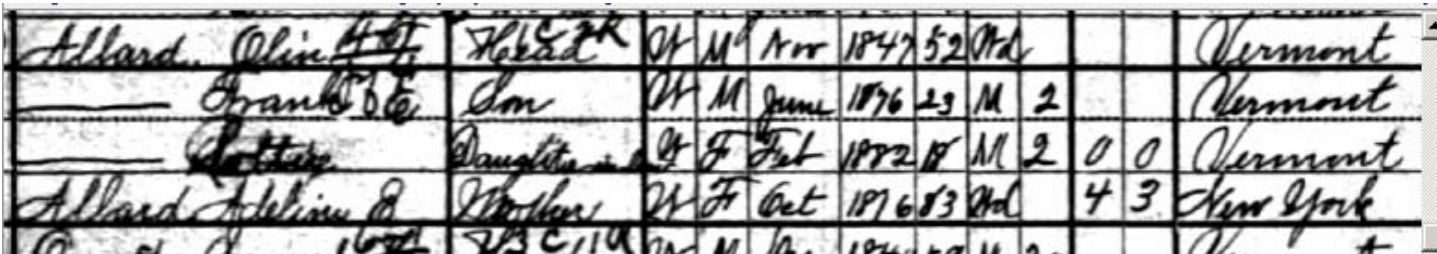 Allard, Olin Head W M Nov 1847 52 Wd Vermont
Frank E Son W M June 1876 23 M 2 Vermont
Lottie Daughter in L W F Feb 1882 18 M 2 0 0 Vermont
Allard Adeline E Mother W F Oct 1816 83 Wd 4 3 New York